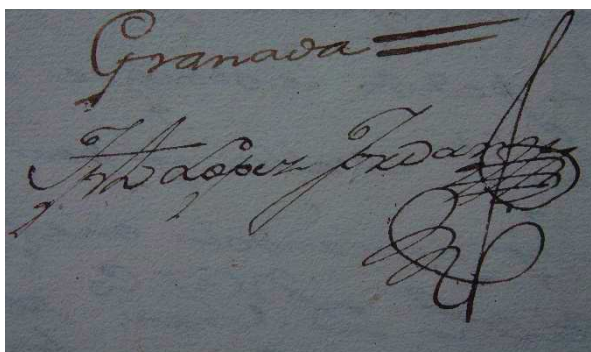 Granada =
Lopez Jordan